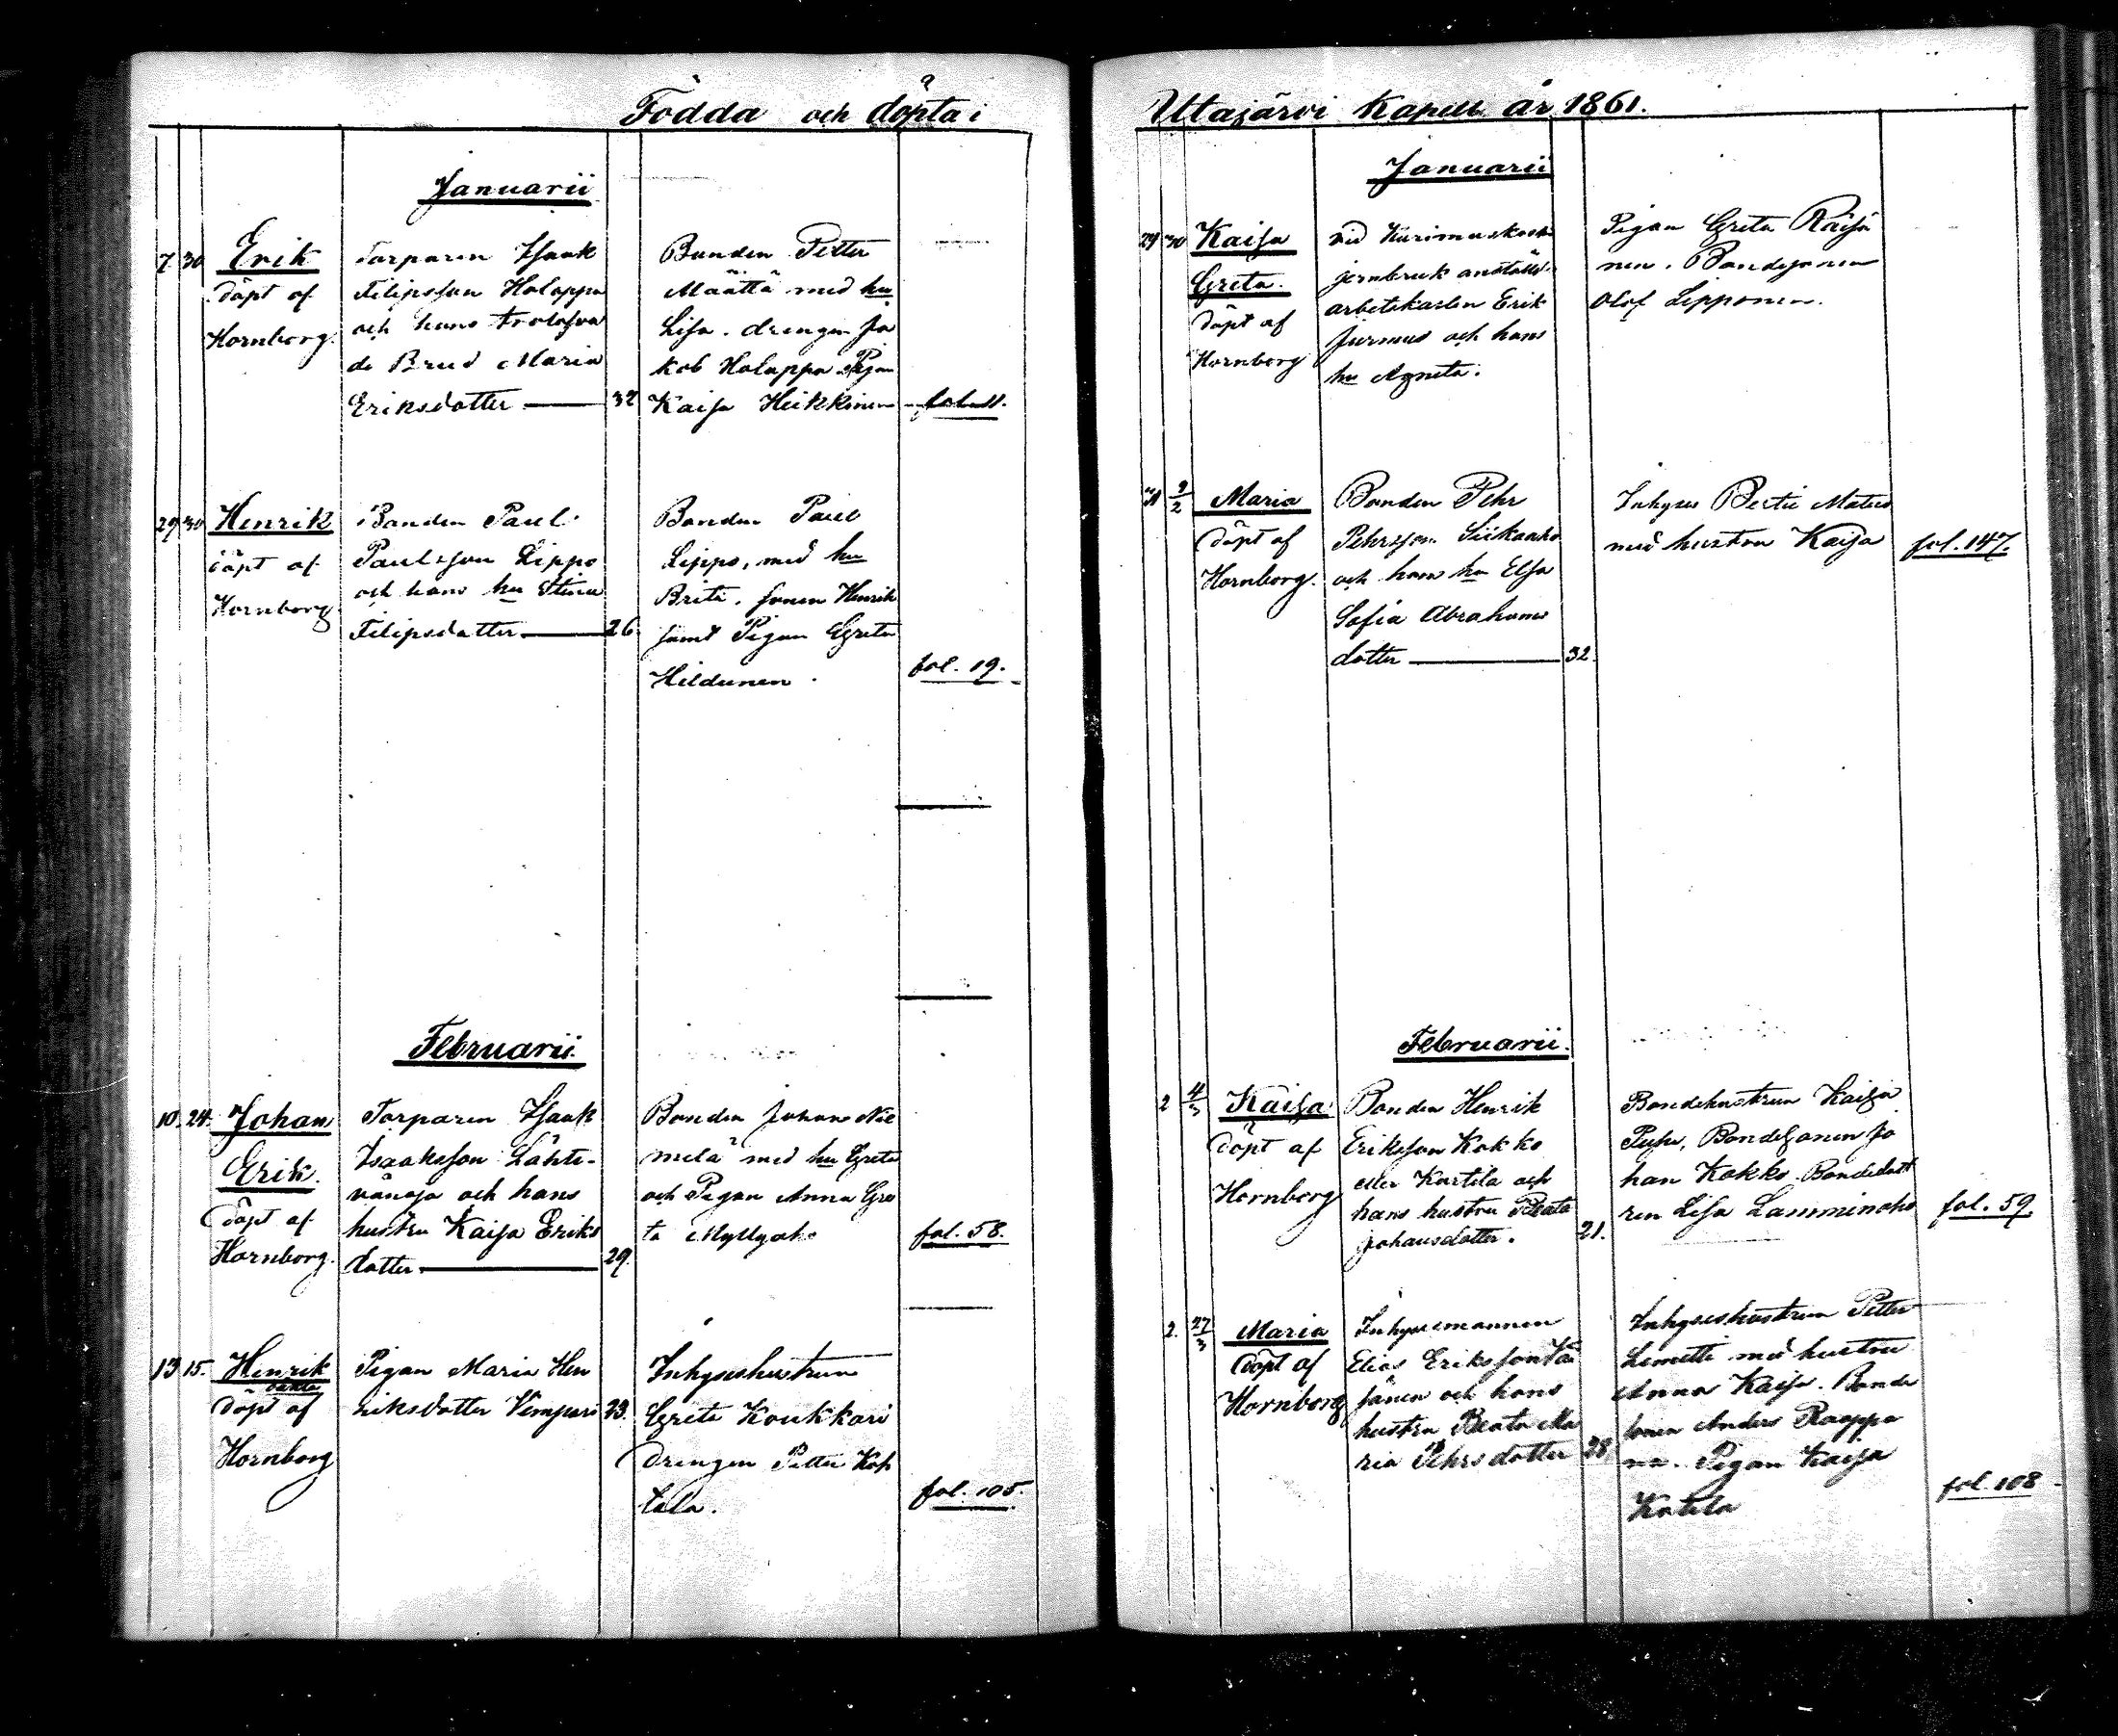 Födda och döpta i
Januarii
7 30 Erik
döpt af
Hornborg.
Torparen Isaak
Filipsson Holappa
och hans trolofva
de Brud Maria
Eriksdotter — 32
Bonden Petter
Määttä med hu
Lisa. drengen Ja
kob Holappa Pigan
Kaisa Heikkinen
fol. 11.
29 30 Henrik
döpt af
Hornborg
Bonden Paul
Paulsson Lippo
och hans hu Stina
Filipsdotter — 26
Bonden Paul
Lippo, med hu
Brita. sonen Henrik
samt Pigan Greta
Hildunen.
fol. 19.
Februarii.
10. 24. Johan
Erik.
döpt af
Hornborg.
Torparen Isaak
Isaaksson Lähte-
vänoja och hans
hustru Kaisa Eriks
dotter — 29.
Bonden Johan Nie
melä med hu Greta
och Pigan Anna Gre
ta Myllyaho
fol. 58.
13 15. Henrik
oäkta
döpt af
Hornborg
Pigan Maria Hen
riksdotter Vimpari 23.
Inhyseshustrun
Greta Koukkari
Drengen Petter
tala.
fol. 105.
Utajärvi Kapell år 1861.
Januarii
29 30 Kaisa
Greta.
döpt af
Hornborg
vid Kurimuskoski
jernbruk anställde
arbetskarlen Erik
Jurmus och hans
hu Agneta.
Pigan Greta Räisä
nen. Bondesonen
Olof Lipponen.
31 2 Maria
döpt af
Hornborg.
Bonden Pehr
Pehrsson Siikaaho
och hans hu Elsa
Sofia Abrahams
dotter — 32.
Inhyses Matus
med hustru Kaisa
fol. 147.
Februarii.
2 4/3 Kaisa
döpt af
Hornborg
Bonden Henrik
Eriksson Kokko
eller Kurtila och
hans hustru Beata
Johansdotter. 21.
Bondehustrun Kaisa
Bondesonen Jo
han Kokko. Bondedott
ren Lisa Lamminaho
fol. 59.
2. 27/3 Maria
döpt af
Hornborg
Inhysesmannen
Elias Eriksson Vä
sänen och hans
hustru Beata Ma
ria Pehrsdotter 28
Inhyseshustrun Petter
Limetti med hustru
Anna Kaisa. Bonde
sonen Anders Raappa
na. Pigan Kaisa
Katila
fol. 108